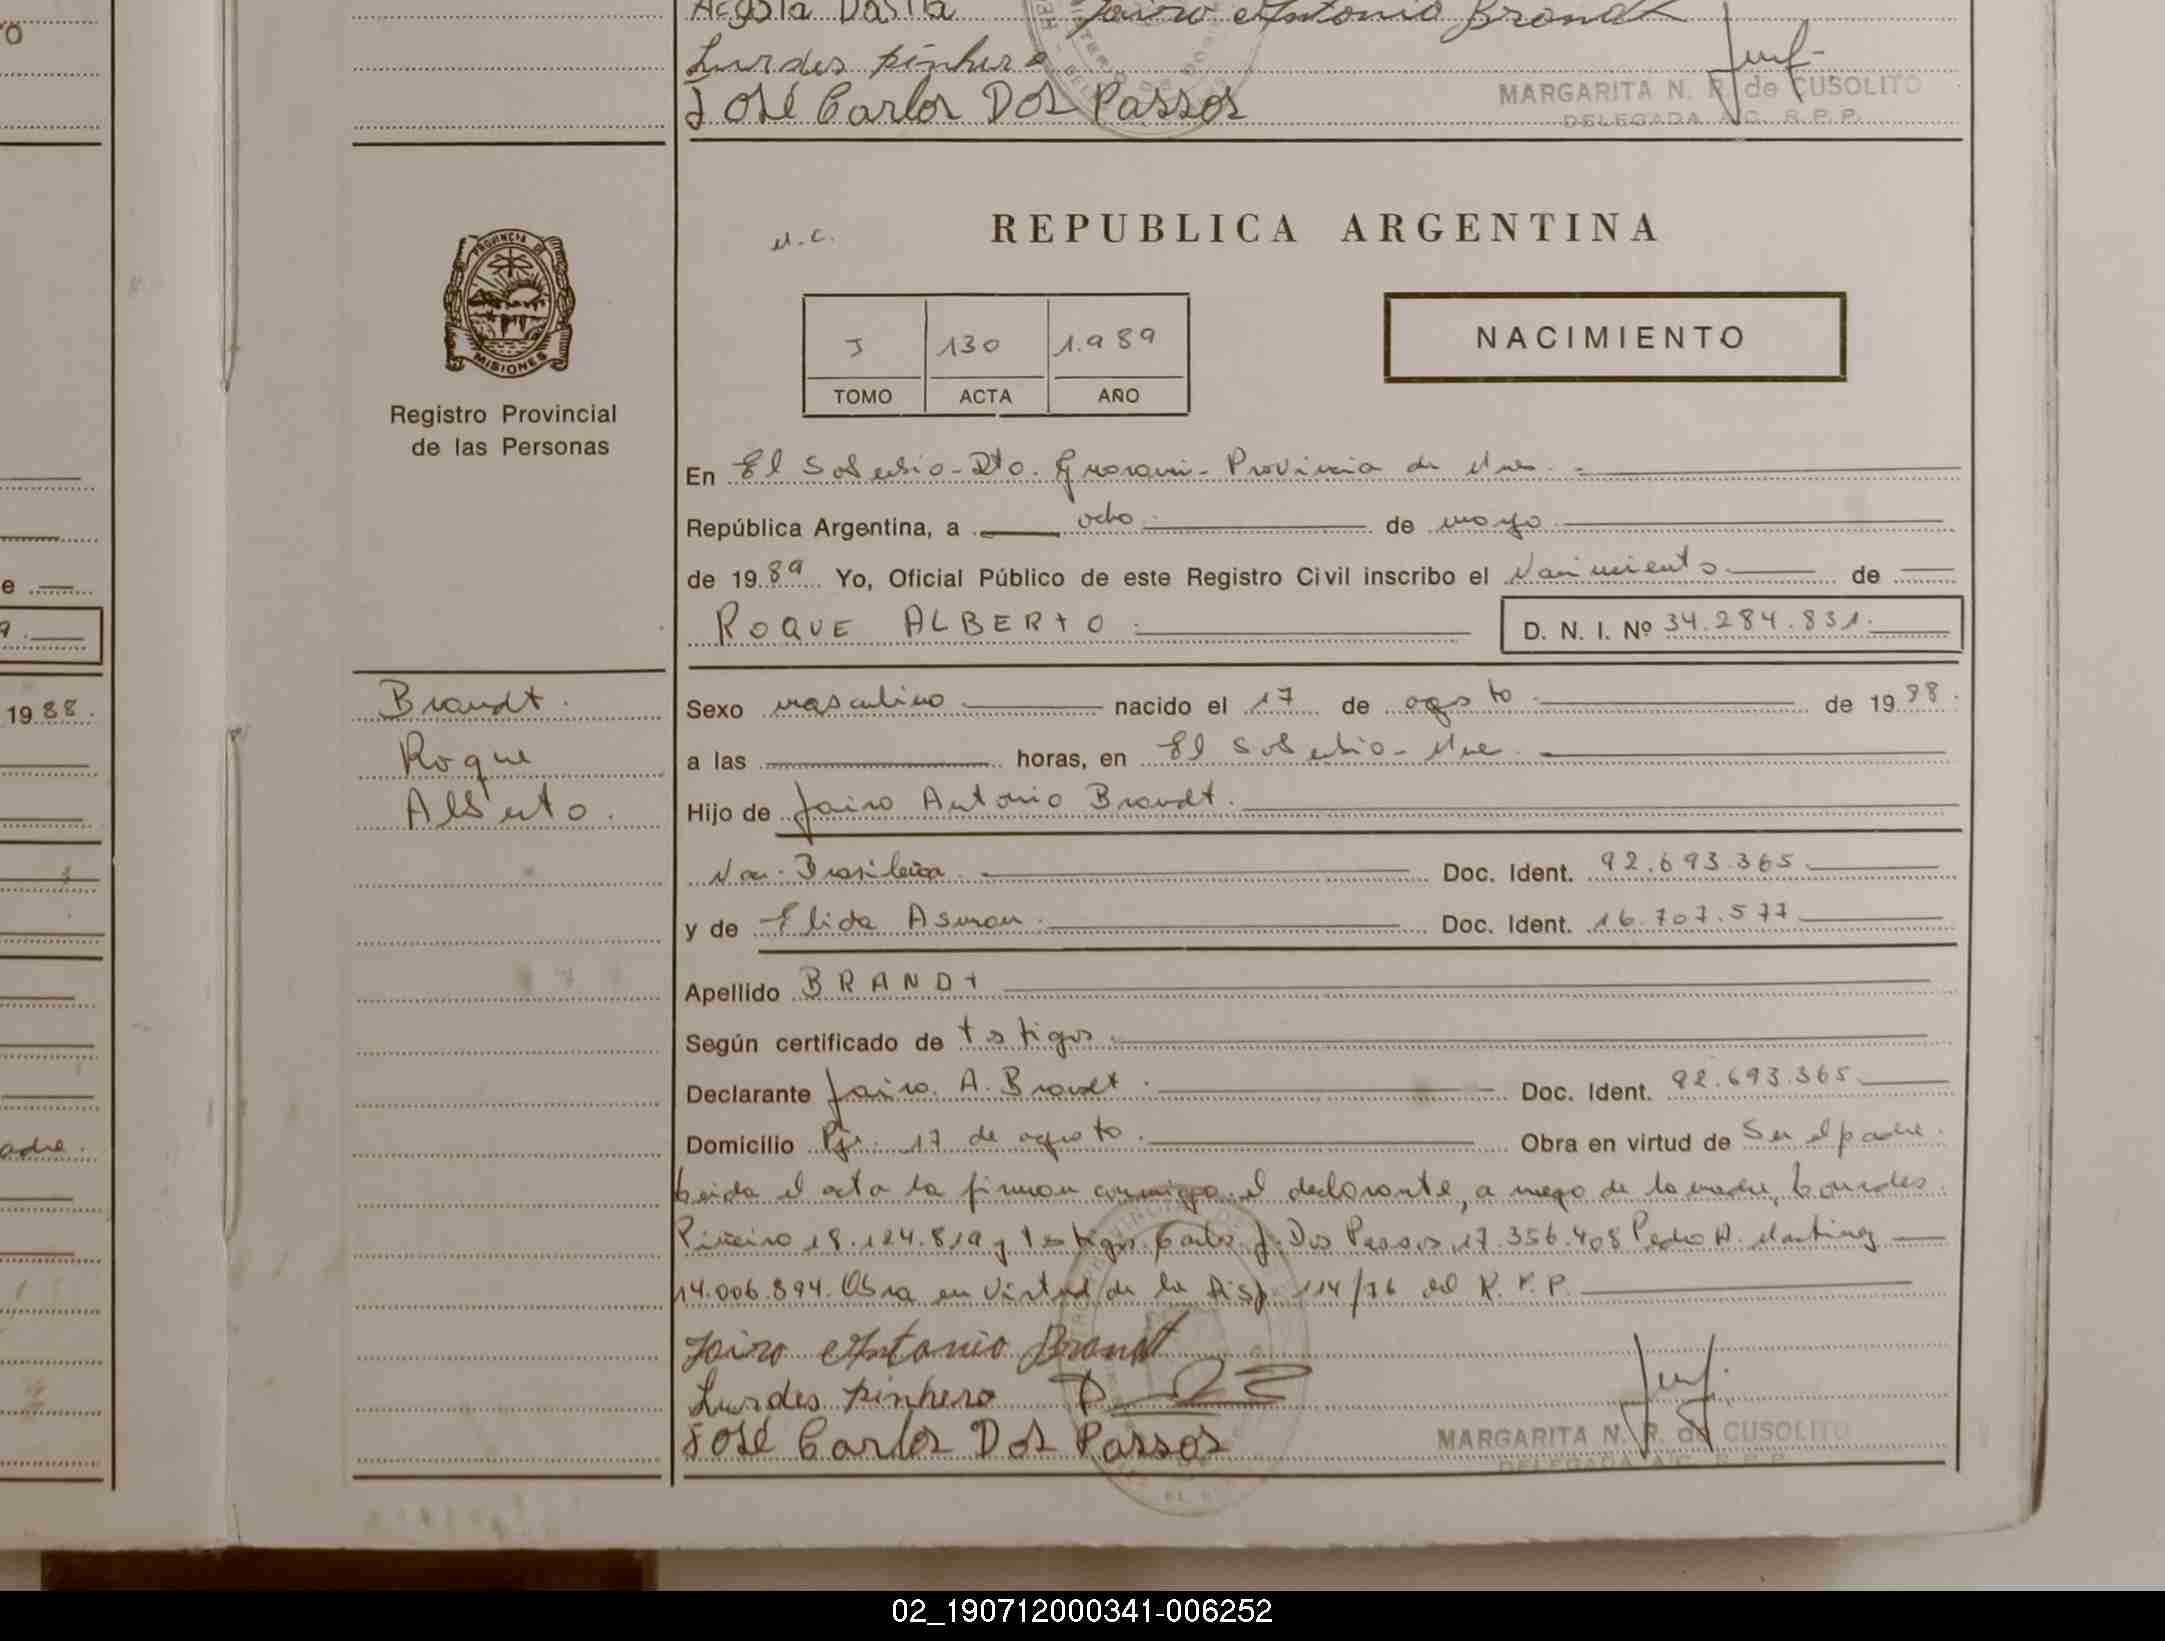 Acosta Dastra Jairo Antonio Brandt
Lurdes pinhero
José Carlos Dos Passos
MARGARITA N. R. de CUSOLITO
DELEGADA A/C. R.P.P.
REPUBLICA ARGENTINA
PROVINCIA DE
MISIONES
Registro Provincial
de las Personas
I 130 1.989
TOMO ACTA AÑO
NACIMIENTO
En El Soberbio - Dto. Guarani - Provincia de Mnes.
República Argentina, a ocho de mayo
de 1989 Yo, Oficial Público de este Registro Civil inscribo el Nacimiento de
ROQUE ALBERTO D. N. I. Nº 34.284.831.
Brandt.
Roque
Alberto.
Sexo masculino nacido el 17 de agosto de 1988.
a las horas, en El Soberbio - Mnes.
Hijo de Jairo Antonio Brandt.
Nac. Brasileña Doc. Ident. 92.693.365
y de Elida Asman Doc. Ident. 16.707.577
Apellido BRANDT
Según certificado de testigos
Declarante Jairo A. Brandt. Doc. Ident. 92.693.365
Domicilio Pje. 17 de agosto. Obra en virtud de Ser el padre.
Leida el acta la firman conmigo el declarante, a ruego de la madre, Lourdes
Piñeiro 18.124.819 y testigos Carlos J. Dos Passos 17.356.408 Pedro A. Martinez
14.006.894. Obra en virtud de la Disp. 114/76 del R.P.P.
Jairo Antonio Brandt
Lurdes pinhero
José Carlos Dos Passos
MARGARITA N. R. de CUSOLITO
DELEGADA A/C. R.P.P.
1988.
adre.
02_190712000341-006252